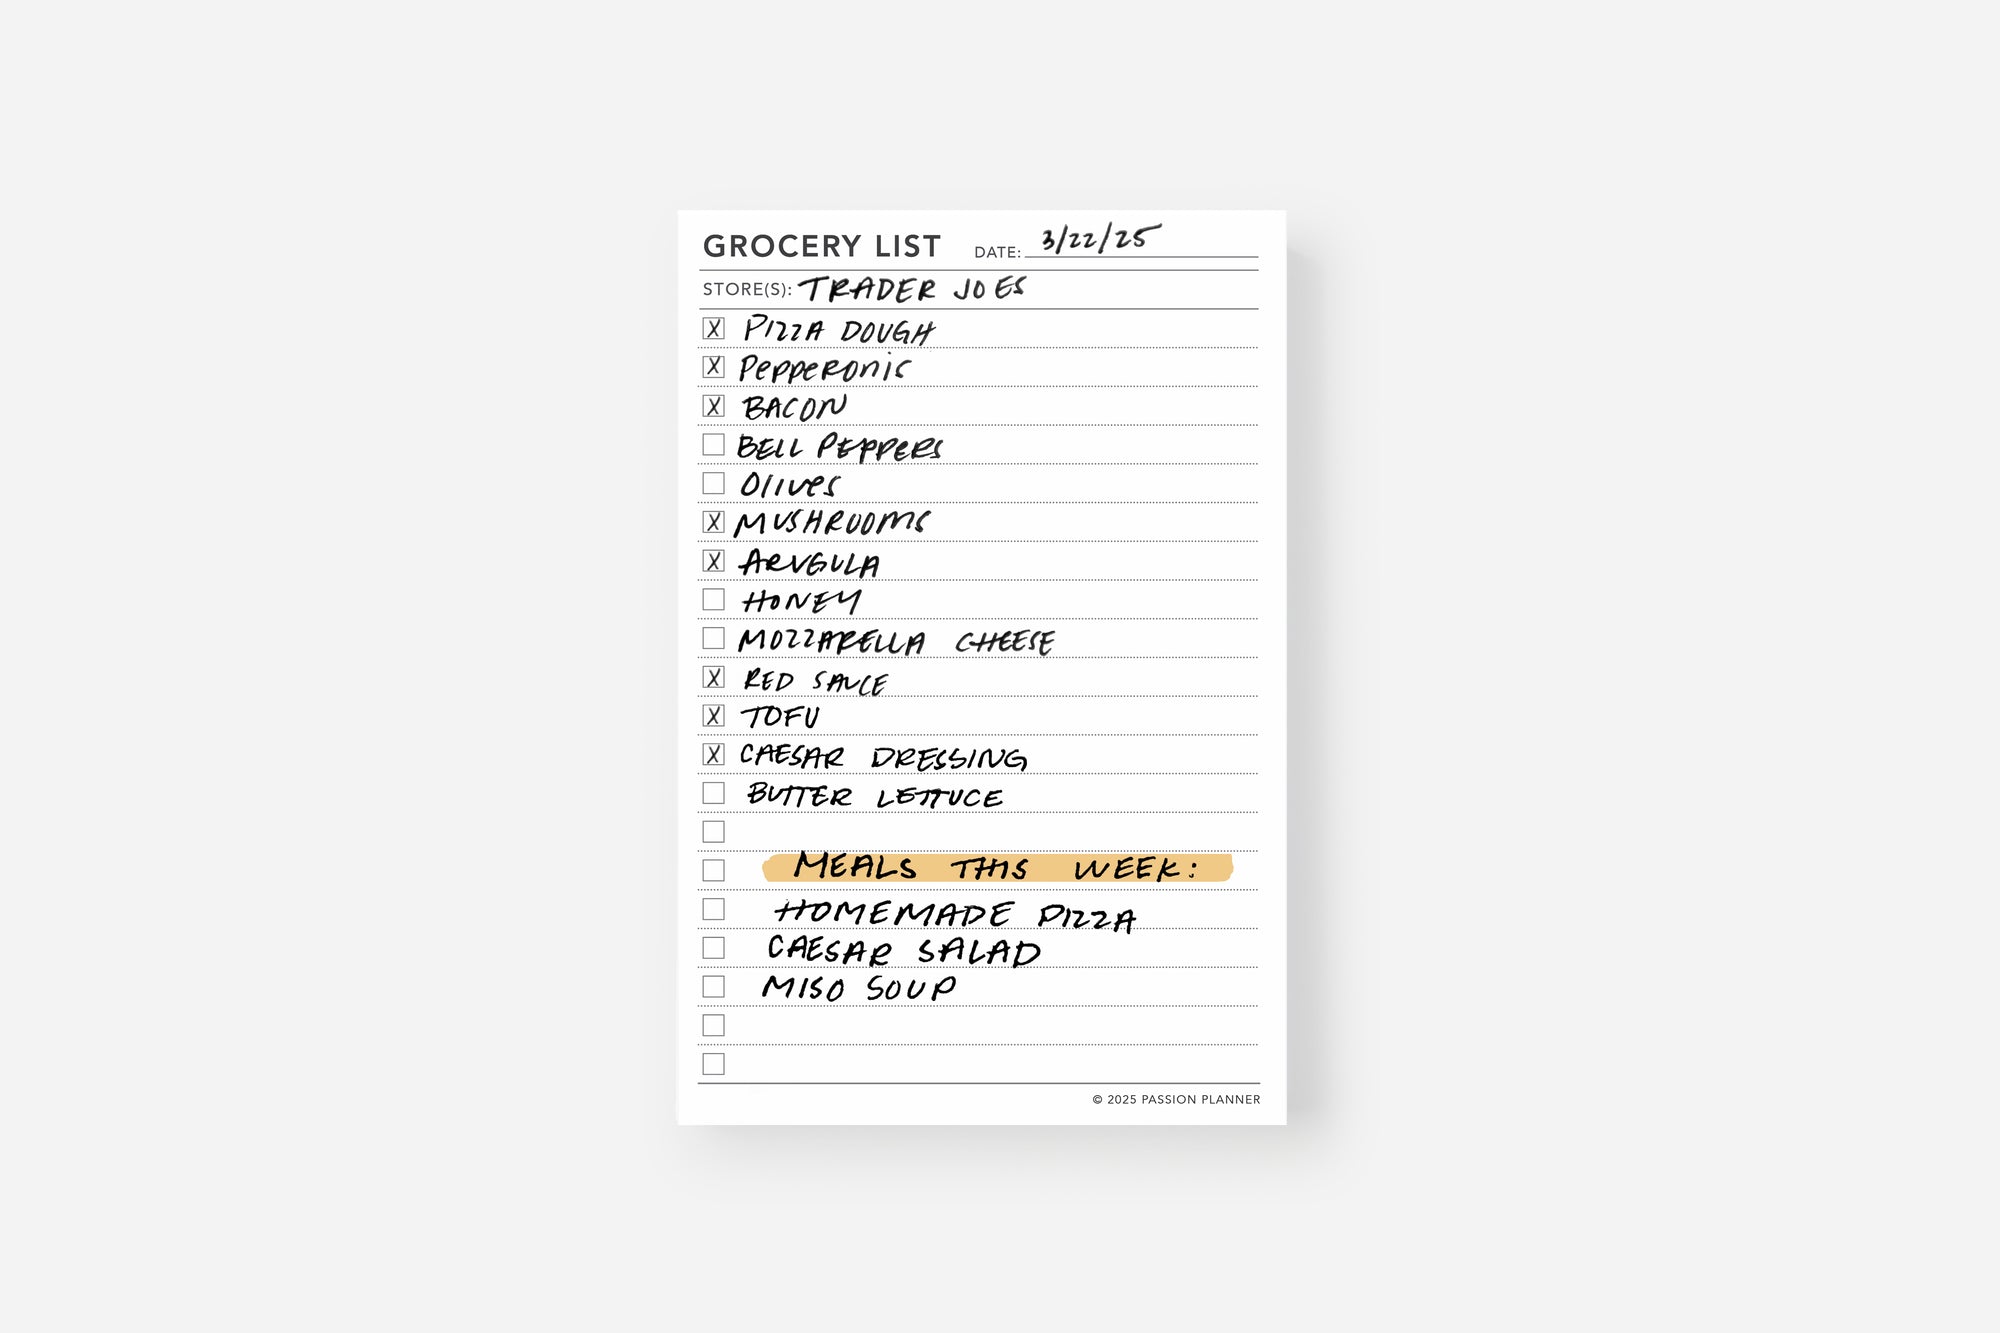 GROCERY LIST DATE: 3/22/25
STORE(S): TRADER JOES
X PIZZA DOUGH
X Pepperonis
X BACON
BELL PEPPERS
Olives
X MUSHROOMS
X ARUGULA
HONEY
MOZZARELLA CHEESE
X RED SAUCE
X TOFU
X CAESAR DRESSING
BUTTER LETTUCE
MEALS THIS WEEK:
HOMEMADE PIZZA
CAESAR SALAD
MISO SOUP
© 2025 PASSION PLANNER